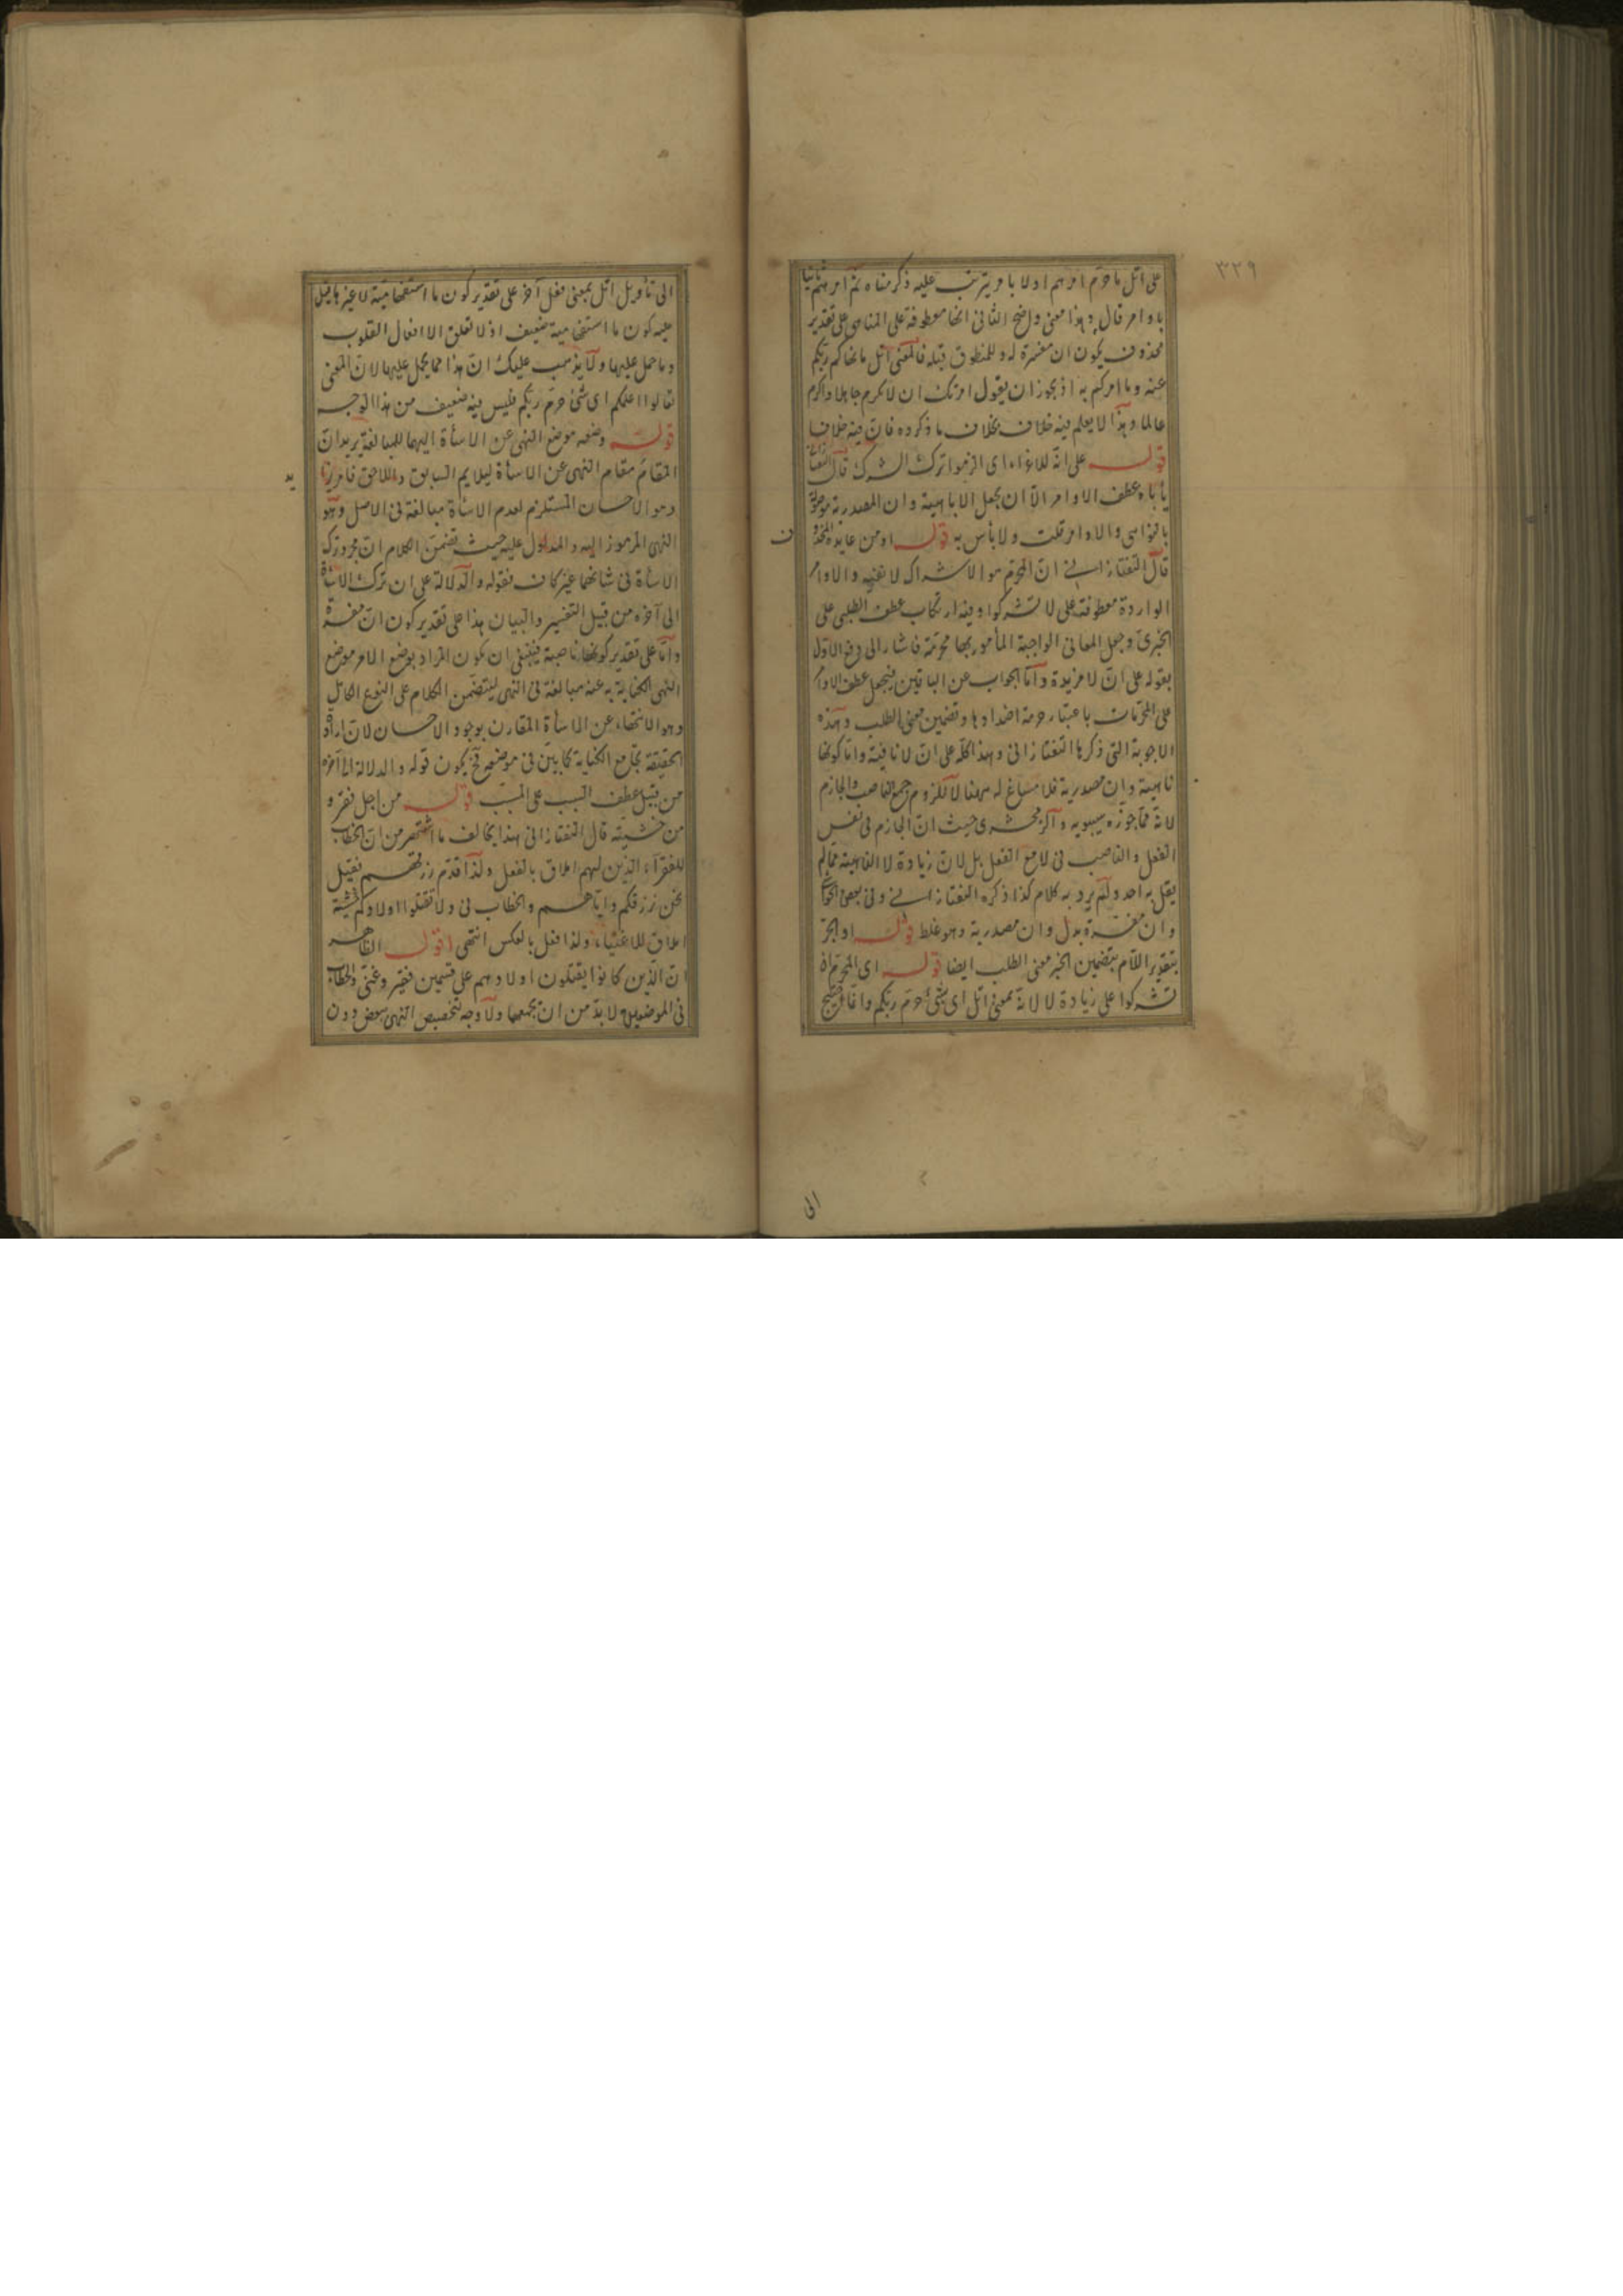 ٣٢٩
على اتل ما حرم امرهم اولا بامر يترتب عليه ذكر مناه ثم امرهم ثانيا
باوامر قال وهذا معنى واضح الثانى انها معطوفة على المناهى على تقدير
محذوف يكون ان مفسرة له وللمنطوق قبله فالمعنى اتل ما نهاكم ربكم
عنه وما امركم به اذ يجوز ان يقول امرتك ان لا تكرم جاهلا واكرم
عالما وهذا لا يعلم فيه خلاف بخلاف ما ذكروه فان فيه خلاف
قوله على انه للاغراء اى الزموا ترك الشرك قال التفتازانى
يأباه عطف الاوامر الا ان يجعل لا ناهية وان المصدرية موصولة
بالنواهى والاوامر قلت ولا بأس به قوله او من عايده المحذوف
قال التفتازانى ان المحرم هو الاشراك لا نفيه والاوامر
الواردة معطوفة على لا تشركوا وفيه ارتكاب عطف الطلبى على
الخبرى وجعل المعانى الواجبة المأمور بها محرمة فاشار الى دفع الاول
بقوله على ان لا مزيدة واما الجواب عن الباقين فبجعل عطف الاوامر
على المحرمات باعتبار حرمة اضدادها وتضمين معنى الطلب وهذه
الاجوبة التى ذكرها التفتازانى وهذا كله على ان لا نافية واما كونها
ناهية وان مصدرية فلا مساغ له ههنا لا للزوم جمع الناصب والجازم
لانه مما جوزه سيبويه والزمخشرى حيث ان الجازم فى نفس
الفعل والناصب فى لا مع الفعل بل لان زيادة لا الناهية مما لم
يقل به احد ولم يرد به كلام كذا ذكره التفتازانى وفى بعض الحواشى
وان مفسرة بدل وان مصدرية وهو غلط قوله او الجر
بتقدير اللام بتضمين الخبر معنى الطلب ايضا قوله اى المحرم ان
تشركوا على زيادة لا لانه بمعنى اتل اى شئ حرم ربكم وانما
الى
الى تأويل اتل بمعنى فعل آخر على تقدير كون ما استفهامية لا غير ما قيل
عليه كون ما استفهامية ضعيف اذ لا تعلق الا افعال القلوب
وما حمل عليها ولا يذهب عليك ان هذا مما يحمل عليها لان المعنى
تعالوا اعلمكم اى شئ حرم ربكم فليس فيه ضعيف من هذا الوجه
قوله وضعه موضع النهى عن الاساءة اليهما للمبالغة يريد ان
المقام مقام النهى عن الاساءة ليلايم السابق واللاحق
وهو الاحسان المستلزم لعدم الاساءة مبالغة فى الاصل وهو
النهى المرموز اليه والمدلول عليه حيث تضمن الكلام ان مجرد ترك
الاساءة فى شانهما غير كاف فقوله والدلالة على ان ترك الاساءة
الى آخره من قبيل التفسير والبيان هذا على تقدير كون ان مفسرة
واما على تقدير كونها ناصبة فينبغى ان يكون المراد بوضع الامر موضع
النهى الكناية به عنه مبالغة فى النهى ليتضمن الكلام على النوع الكامل
وهو الانتهاء عن الاساءة المقارن بوجود الاحسان لان ارادة
الحقيقة تجامع الكناية كما بين فى موضعه فح يكون قوله والدلالة الى آخره
من قبيل عطف السبب على المسبب قوله من اجل فقر و
من خشيته قال التفتازانى هذا يخالف ما اشتهر من ان الخطاب
للفقراء الذين لهم املاق بالفعل ولذا قدم رزقهم فقيل
نحن نرزقكم واياهم والخطاب فى ولا تقتلوا اولادكم خشية
املاق للاغنياء ولذا فعل بالعكس انتهى اقول الظاهر
ان الذين كانوا يقتلون اولادهم على قسمين فقير وغنى والخطاب
فى الموضعين لا بد من ان يجمعها ولا وجه لتخصيص النهى ببعض دون